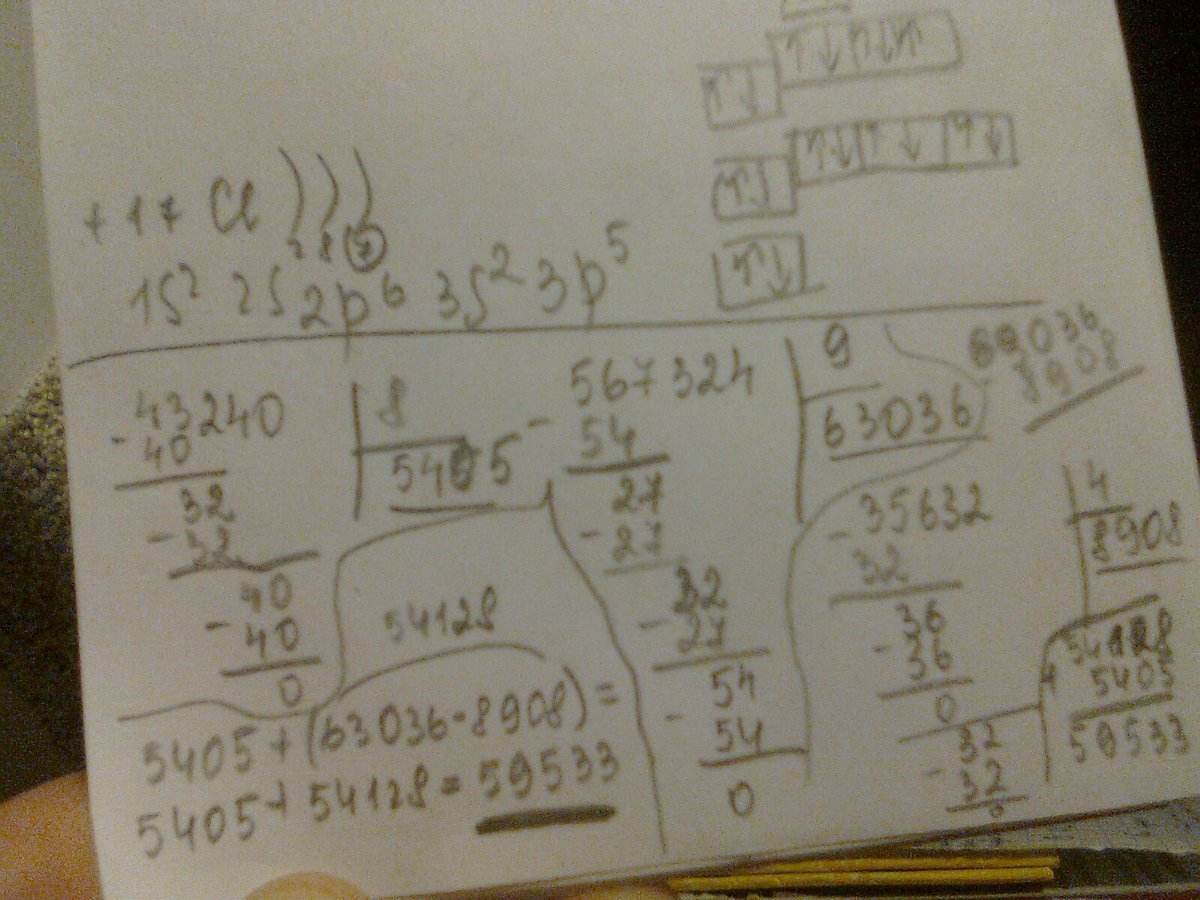 +17 Cl ) ) )
2 8 7
1S² 2S 2p⁶ 3S² 3p⁵
43240 | 8
- 40
5405
32
- 32
40
- 40
0
567324 | 9
- 54
63036
27
- 27
32
- 27
54
- 54
0
63036
- 8908
54128
35632 | 4
- 32
8908
36
- 36
0
32
- 32
0
54128
+ 5405
59533
5405 + (63036 - 8908) =
5405 + 54128 = 59533